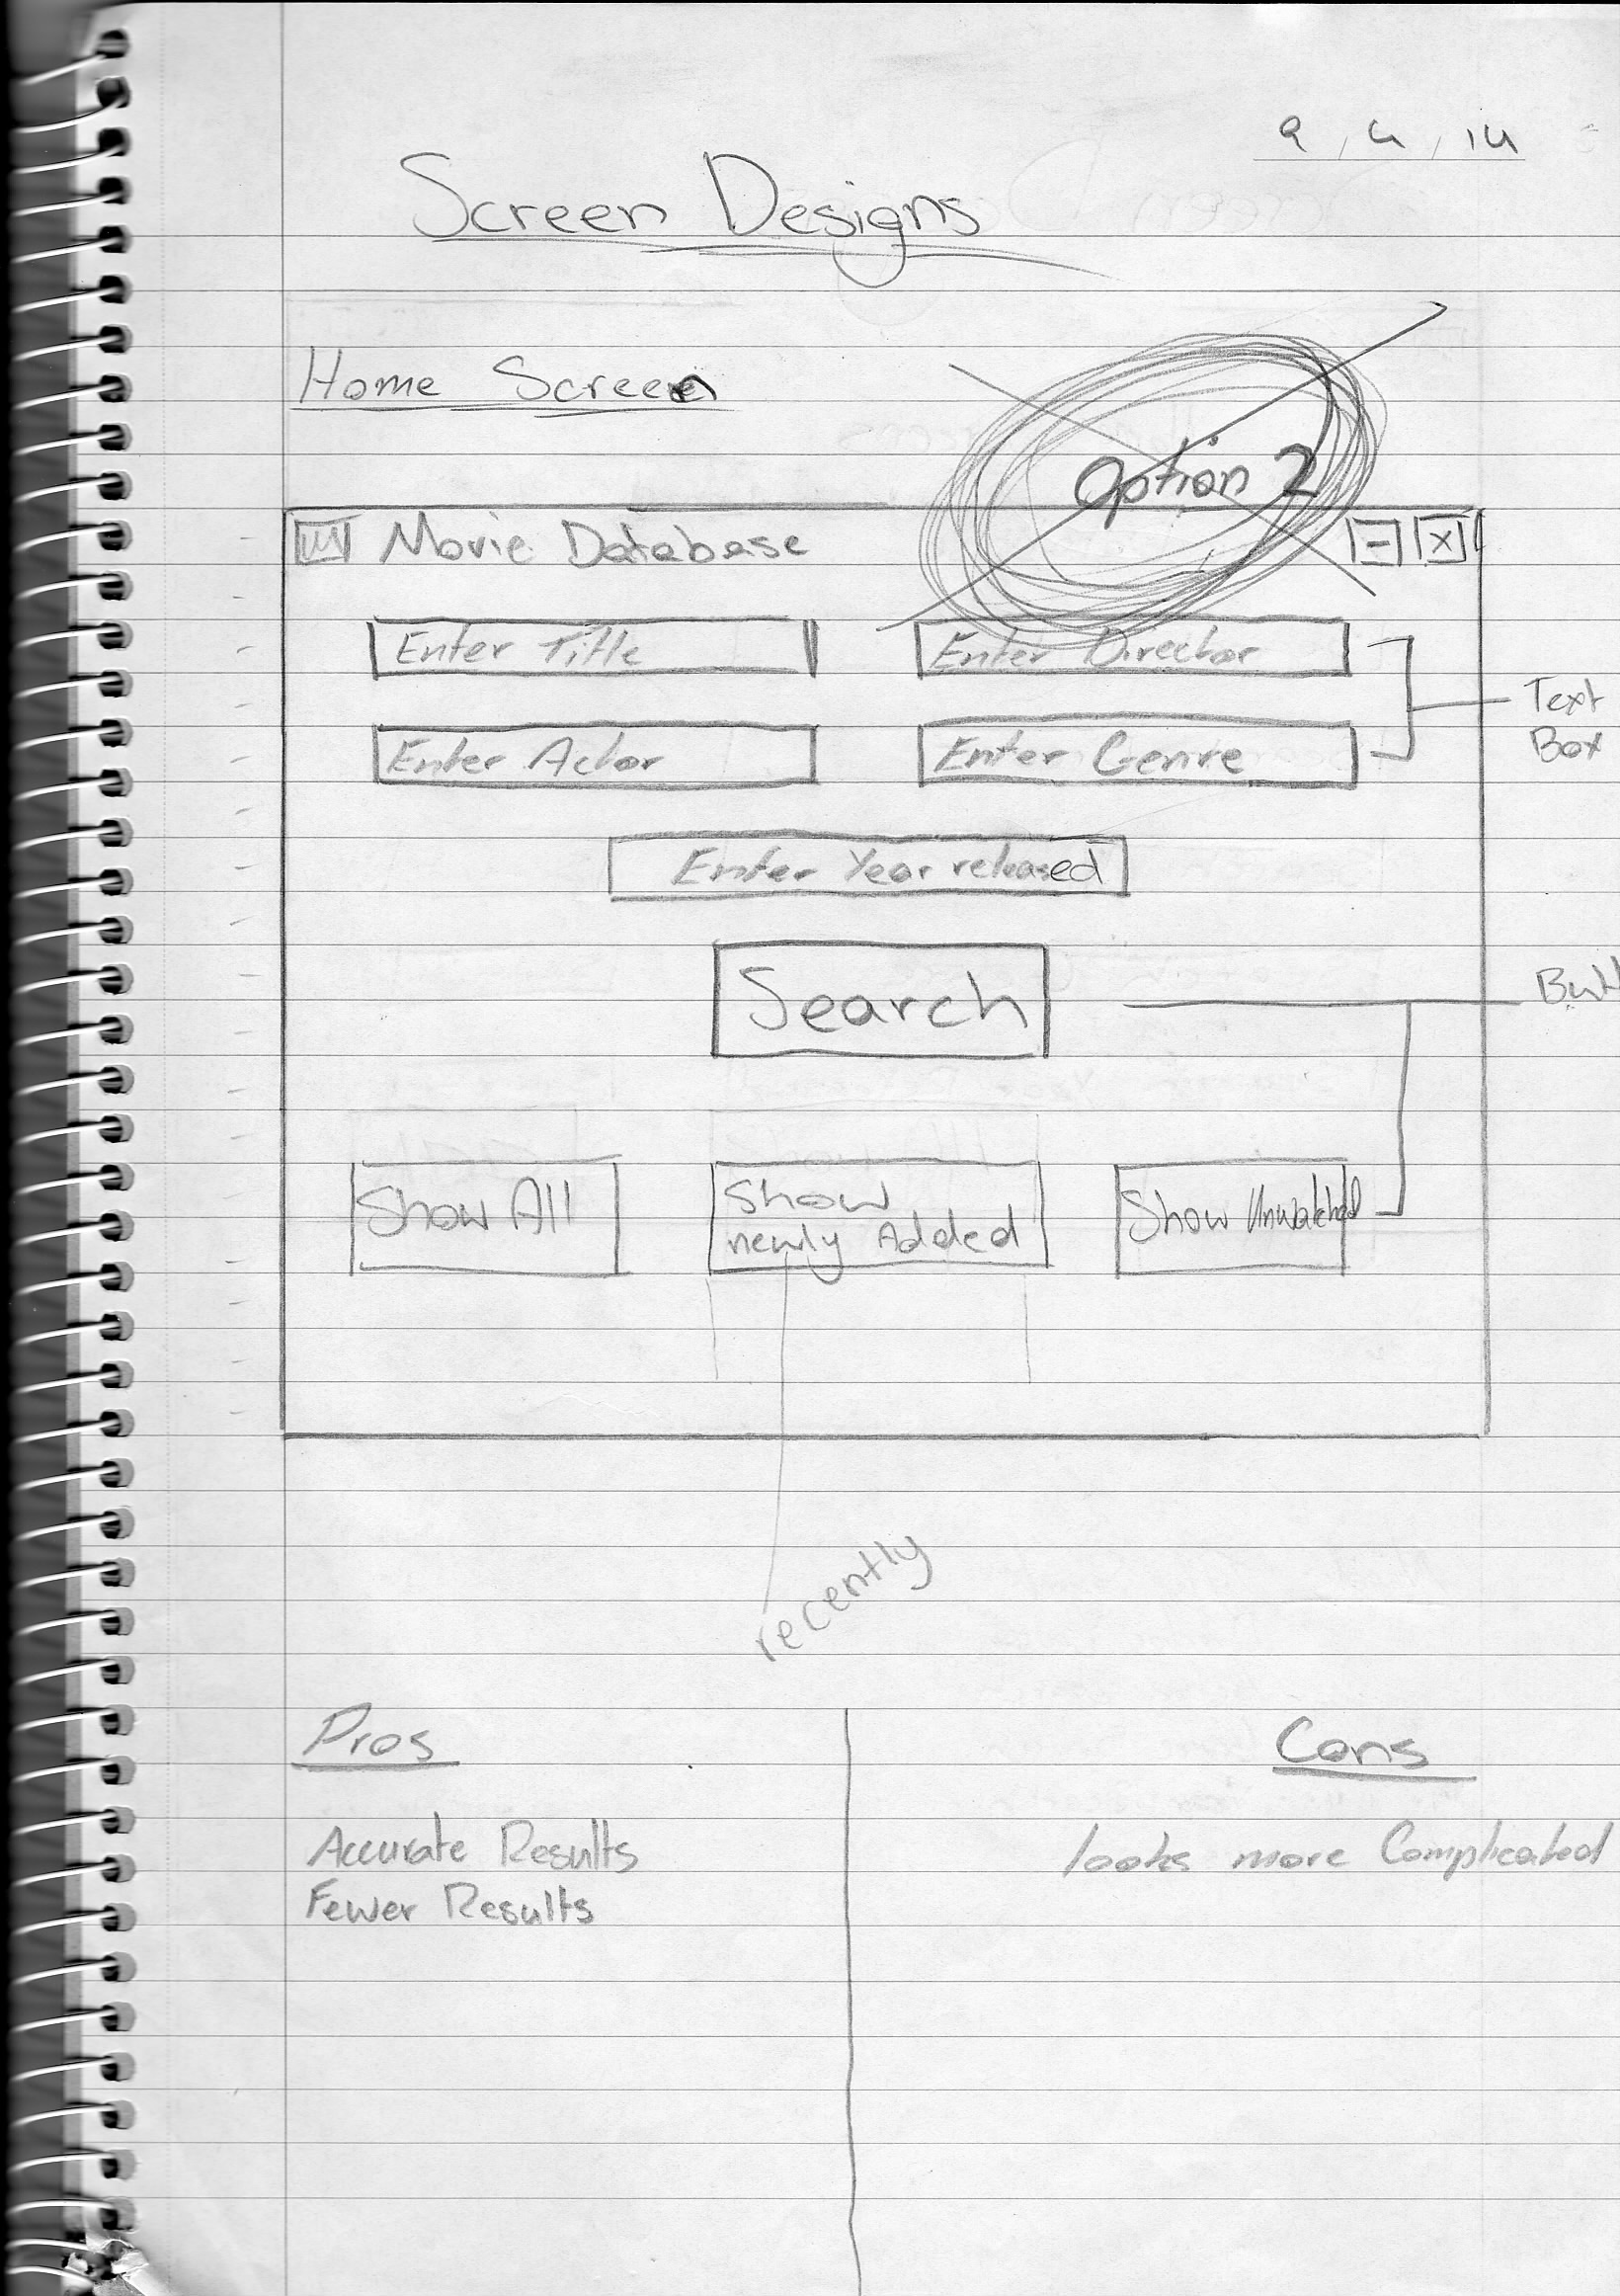 9, 4, 14
Screen Designs
Home Screen
Option 2
M Movie Database - X
Enter Title Enter Director
Text
Box
Enter Actor Enter Genre
Enter Year released
Search
Butt
Show All
Show
newly Added
Show Unwatched
recently
Pros Cons
Accurate Results looks more Complicated
Fewer Results